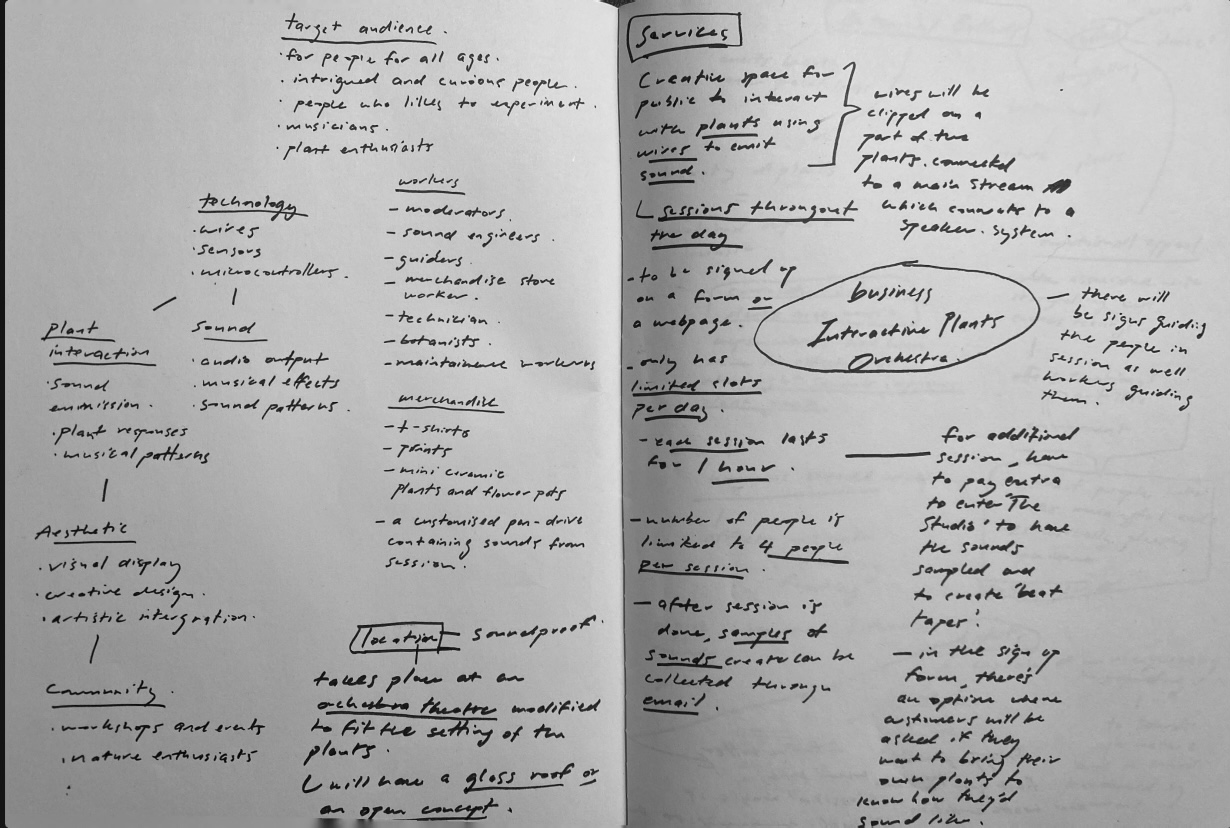 target audience.
· for people for all ages.
· intrigued and curious people.
· people who likes to experiment.
· musicians.
· plant enthusiasts
technology
· wires
· sensors
· microcontrollers.
plant
interaction
· sound
emmission.
· plant responses
· musical patterns
sound
· audio output
· musical effects
· sound patterns.
Aesthetic
· visual display
· creative design.
· artistic intergration.
Community.
· workshops and events
· nature enthusiasts
workers
- moderators.
- sound engineers.
- guiders.
- merchandise store
worker.
- technician.
- botanists.
- maintainence workers
merchandise
- t-shirts
- prints
- mini ceramic
plants and flower pots
- a customised pen-drive
containing sounds from
session.
location - soundproof.
takes place at an
orchestra theatre modified
to fit the setting of the
plants.
will have a glass roof or
an open concept.
Services
Creative space for
public to interact
with plants using
wires to emit
sound.
wires will be
clipped on a
part of the
plants. connected
to a main stream
which connects to a
speaker. system.
sessions througout
the day
- to be signed up
on a form or
a webpage.
- only has
limited slots
per day.
- each session lasts
for 1 hour.
- number of people is
limited to 4 people
per session.
- after session is
done, samples of
sounds create can be
collected through
email.
business
Interactive Plants
Orchestra.
- there will
be signs guiding
the people in
session as well
workers guiding
them.
for additional
session, have
to pay extra
to enter 'The
Studio' to have
the sounds
sampled and
to create 'beat
tapes'.
- in the sign up
form, there's
an option where
customers will be
asked if they
want to bring their
own plants to
know how they'd
sound like.